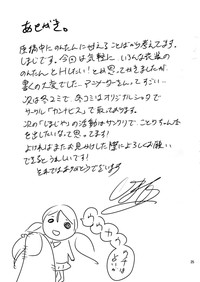 あとがき。
原稿中にのんたんに甘えることばかり考えてます。
しまじです。今回は気軽に いろんな衣装の
のんたんとHしたい！とか思って始めましたが
書くの大変でした…アニメーターさんってすごい…
次は冬コミで、冬コミはオリジナルショタで
サークル「カンナビス」で取っております。
次の「しまじや」の活動はサンクリで、ことりちゃん本
を出したいなって思ってます！
よければまたお見かけした際によろしくお願い
できるとうれしいです！
それではありがとうございます